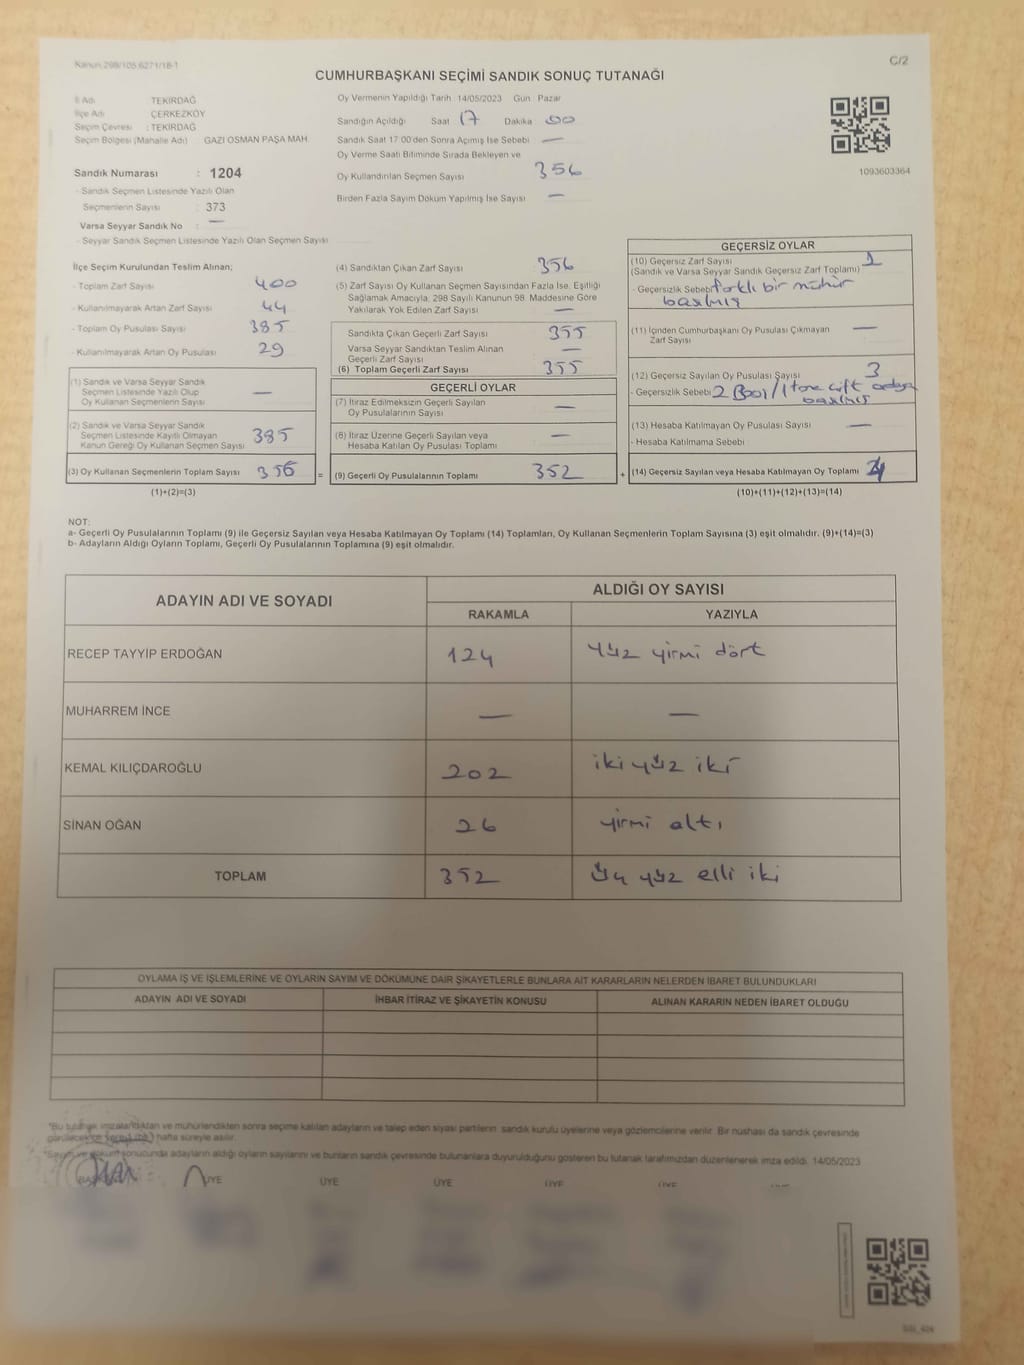 Kanun 298/105,6271/18-1
C/2
CUMHURBAŞKANI SEÇİMİ SANDIK SONUÇ TUTANAĞI
İl Adı TEKİRDAĞ
İlçe Adı ÇERKEZKÖY
Seçim Çevresi : TEKİRDAĞ
Seçim Bölgesi (Mahalle Adı) GAZİ OSMAN PAŞA MAH.
Sandık Numarası : 1204
- Sandık Seçmen Listesinde Yazılı Olan
Seçmenlerin Sayısı : 373
Varsa Seyyar Sandık No : —
- Seyyar Sandık Seçmen Listesinde Yazılı Olan Seçmen Sayısı
Oy Vermenin Yapıldığı Tarih 14/05/2023 Gün Pazar
Sandığın Açıldığı Saat 17 Dakika 00
Sandık Saat 17:00'den Sonra Açımış İse Sebebi —
Oy Verme Saati Bitiminde Sırada Bekleyen ve
Oy Kullandırılan Seçmen Sayısı 356
Birden Fazla Sayım Döküm Yapılmış İse Sayısı —
1093603364
İlçe Seçim Kurulundan Teslim Alınan;
- Toplam Zarf Sayısı 400
- Kullanılmayarak Artan Zarf Sayısı 44
- Toplam Oy Pusulası Sayısı 385
- Kullanılmayarak Artan Oy Pusulası 29
(1) Sandık ve Varsa Seyyar Sandık
Seçmen Listesinde Yazılı Olup
Oy Kullanan Seçmenlerin Sayısı —
(2) Sandık ve Varsa Seyyar Sandık
Seçmen Listesinde Kayıtlı Olmayan
Kanun Gereği Oy Kullanan Seçmen Sayısı 385
(3) Oy Kullanan Seçmenlerin Toplam Sayısı 356 =
(1)+(2)=(3)
(4) Sandıktan Çıkan Zarf Sayısı 356
(5) Zarf Sayısı Oy Kullanan Seçmen Sayısından Fazla İse, Eşitliği
Sağlamak Amacıyla; 298 Sayılı Kanunun 98. Maddesine Göre
Yakılarak Yok Edilen Zarf Sayısı —
Sandıkta Çıkan Geçerli Zarf Sayısı 355
Varsa Seyyar Sandıktan Teslim Alınan
Geçerli Zarf Sayısı —
(6) Toplam Geçerli Zarf Sayısı 355
GEÇERLİ OYLAR
(7) İtiraz Edilmeksizin Geçerli Sayılan
Oy Pusulalarının Sayısı —
(8) İtiraz Üzerine Geçerli Sayılan veya
Hesaba Katılan Oy Pusulası Toplamı —
(9) Geçerli Oy Pusulalarının Toplamı 352 +
GEÇERSİZ OYLAR
(10) Geçersiz Zarf Sayısı 1
(Sandık ve Varsa Seyyar Sandık Geçersiz Zarf Toplamı)
- Geçersizlik Sebebi farklı bir mühür
basılmış
(11) İçinden Cumhurbaşkanı Oy Pusulası Çıkmayan
Zarf Sayısı —
(12) Geçersiz Sayılan Oy Pusulası Sayısı 3
- Geçersizlik Sebebi 2 Boş/1 tane çift adaya
basılmış
(13) Hesaba Katılmayan Oy Pusulası Sayısı —
- Hesaba Katılmama Sebebi
(14) Geçersiz Sayılan veya Hesaba Katılmayan Oy Toplamı 4
(10)+(11)+(12)+(13)=(14)
NOT:
a- Geçerli Oy Pusulalarının Toplamı (9) ile Geçersiz Sayılan veya Hesaba Katılmayan Oy Toplamı (14) Toplamları, Oy Kullanan Seçmenlerin Toplam Sayısına (3) eşit olmalıdır. (9)+(14)=(3)
b- Adayların Aldığı Oyların Toplamı, Geçerli Oy Pusulalarının Toplamına (9) eşit olmalıdır.
ADAYIN ADI VE SOYADI ALDIĞI OY SAYISI
RAKAMLA YAZIYLA
RECEP TAYYİP ERDOĞAN 124 yüz yirmi dört
MUHARREM İNCE — —
KEMAL KILIÇDAROĞLU 202 iki yüz iki
SİNAN OĞAN 26 yirmi altı
TOPLAM 352 üç yüz elli iki
OYLAMA İŞ VE İŞLEMLERİNE VE OYLARIN SAYIM VE DÖKÜMÜNE DAİR ŞİKAYETLERLE BUNLARA AİT KARARLARIN NELERDEN İBARET BULUNDUKLARI
ADAYIN ADI VE SOYADI İHBAR İTİRAZ VE ŞİKAYETİN KONUSU ALINAN KARARIN NEDEN İBARET OLDUĞU
*Bu tutanak imzalandıktan ve mühürlendikten sonra seçime katılan adayların ve talep eden siyasi partilerin sandık kurulu üyelerine veya gözlemcilerine verilir. Bir nüshası da sandık çevresinde
görülecek bir yere (bir) hafta süreyle asılır.
*Sayım ve döküm sonucunda adayların aldığı oyların sayılarını ve bunların sandık çevresinde bulunanlara duyurulduğunu gösteren bu tutanak tarafımızdan düzenlenerek imza edildi. 14/05/2023
BAŞKAN ÜYE ÜYE ÜYE ÜYE ÜYE